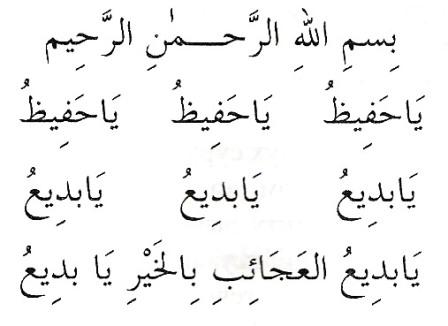 بِسمِ اللهِ الرَّحـــمٰنِ الرَّحِيم
يَاحَفِيظُ يَاحَفِيظُ يَاحَفِيظُ
يَابدِيعُ يَابدِيعُ يَابدِيعُ
يَابدِيعُ العَجَائِبِ بِالخَيْرِ يَا بدِيعُ